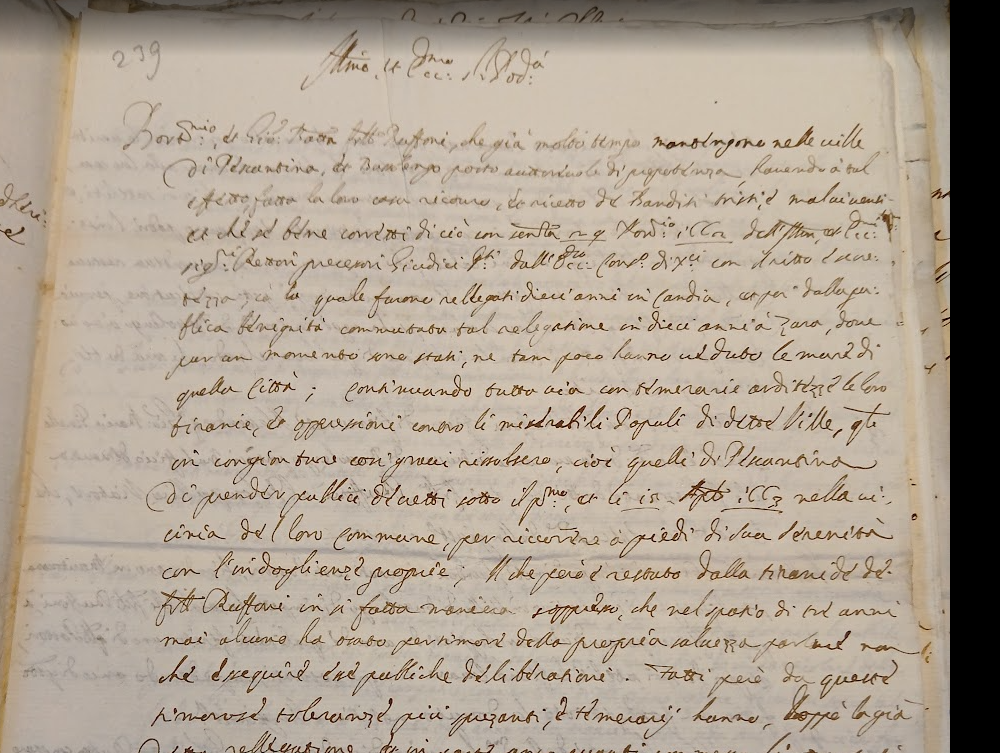 239
Bort.mio, et Gio: Batta fr̃lli Ruffoni, che già molto tempo mantengono nelle ville
di Pescantina, et Bussolengo posto auttorevole di prepotenza, havendo à tal
effetto fatta la loro casa ricovro, et ricetto de Banditi tristi, e malviventi
et che se bene corretti di ciò con sent.a 27 9 1662 dell' Ill.mi, et Ecc.
sig.ri Rettori precesori Giudici dall' Ecc. Cons.o di X.ci con il ritto, e secre-
tezza la quale furono rellegati dieci anni in Candia, et poi dalla pu-
blica benignità commutata tal relegatione in dieci anni à Zara, dove
pur un momento sono stati, ne tam poco hanno veduto le mura di
quella Città; Continuando tutta via con temerarie arditezze le loro
tiranie, et oppressioni contro li miserabili Popoli di dette Ville, q.li
in congionture cosi gravi risolsero, cioè quelli di Pescantina
di prender publici decretti sotto il p.mo, et li 15 1663 nella vi-
cinia del loro Commune, per riccorrere à piedi di Sua Serenità
con l'indoglienze proprie; Il che però è restato dalla tiranide de
fr̃lli Ruffoni in si fatta maniera soppresso, che nel spatio di tre anni
mai alcuno ha osato per timore della propria salvezza parlare non
che eseguire esse publiche deliberatione. Fatti però da queste
timorose toleranze più prezanti, e temerarij hanno, doppò la già
rellegatione